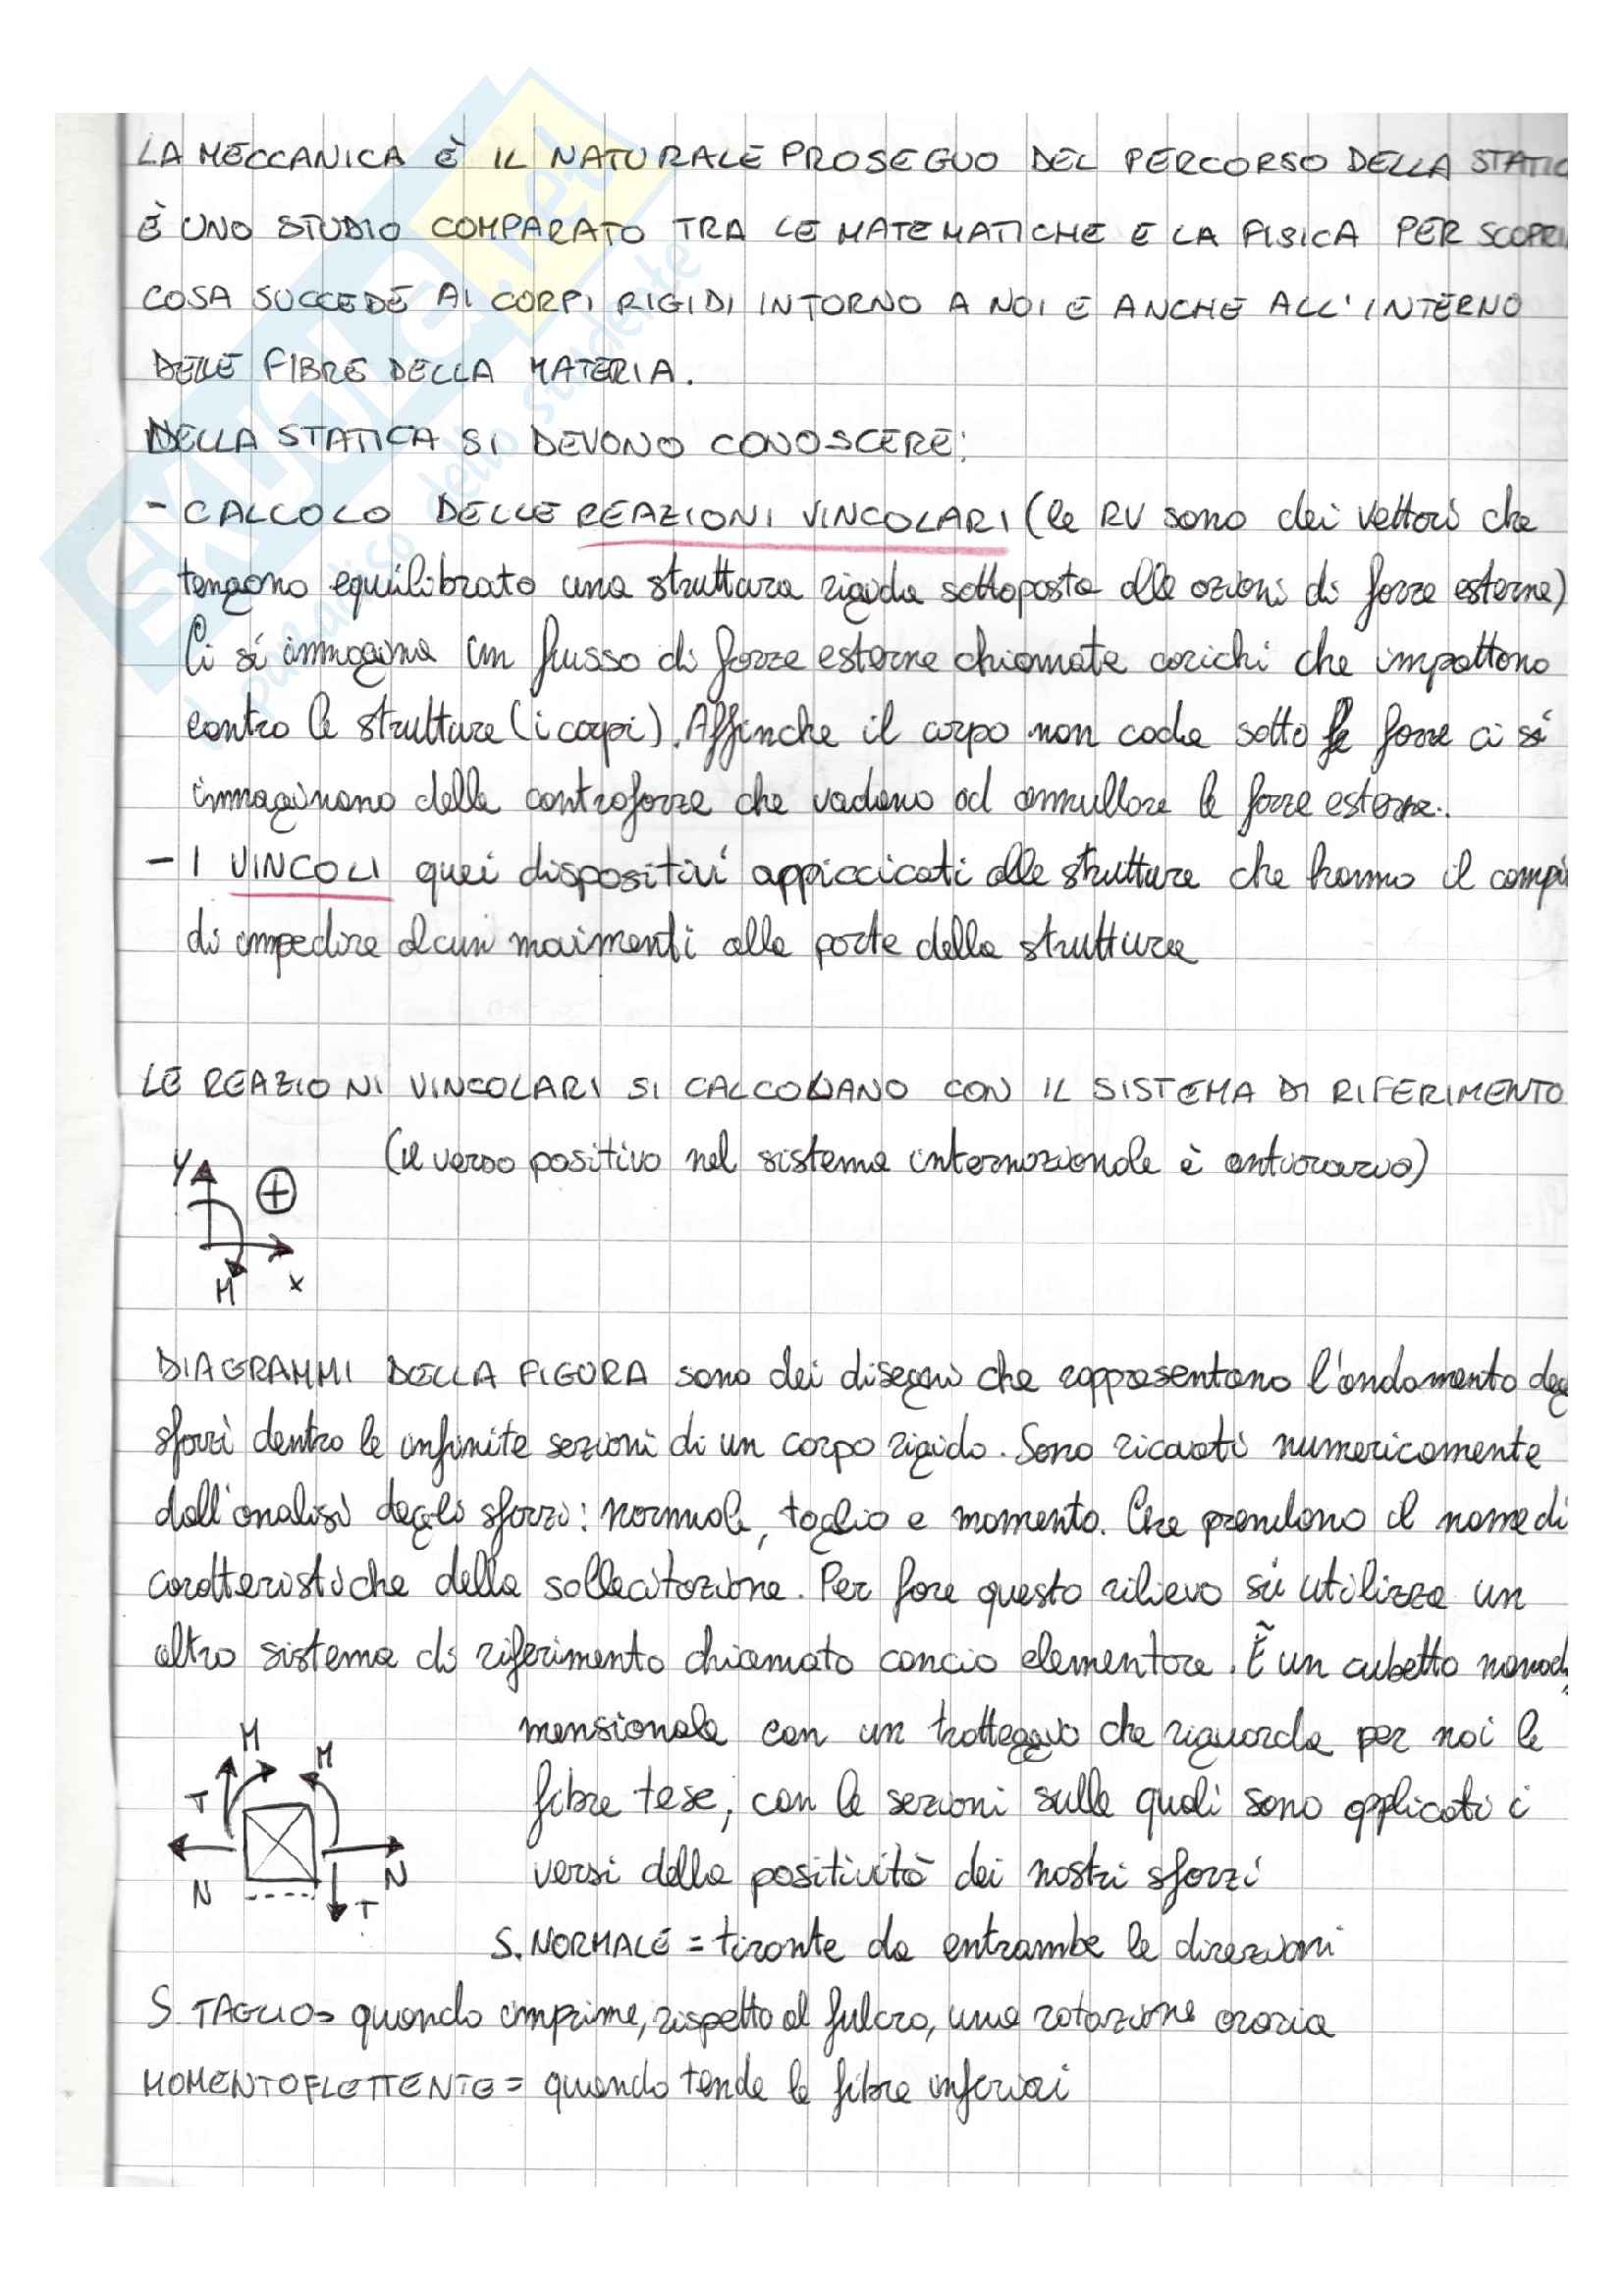 LA MECCANICA È IL NATURALE PROSEGUO DEL PERCORSO DELLA STATIC
È UNO STUDIO COMPARATO TRA LE MATEMATICHE E LA FISICA PER SCOPRI
COSA SUCCEDE AI CORPI RIGIDI INTORNO A NOI E ANCHE ALL'INTERNO
DELLE FIBRE DELLA MATERIA.
DELLA STATICA SI DEVONO CONOSCERE:
- CALCOLO DELLE REAZIONI VINCOLARI (le RV sono dei vettori che
tengono equilibrato una struttura rigida sottoposta alle azioni di forze esterne)
Ci si immagina un flusso di forze esterne chiamate carichi che impattono
contro le strutture (i corpi). Affinche il corpo non cada sotto le forze ci si
immaginano delle controforze che vadano ad annullare le forze esterne.
- I VINCOLI quei dispositivi appiccicati alle strutture che hanno il compi
di impedire alcun movimenti alla parte della struttura
LE REAZIONI VINCOLARI SI CALCOLANO CON IL SISTEMA DI RIFERIMENTO
(il verso positivo nel sistema internazionale è antiorario)
Y
+
M x
DIAGRAMMI DELLA FIGURA sono dei disegni che rappresentano l'andamento deg
sforzi dentro le infinite sezioni di un corpo rigido. Sono ricavati numericamente
dall'analisi degli sforzi: normale, taglio e momento. Che prendono il nome di
caratteristiche della sollecitazione. Per fare questo rilievo si utilizza un
altro sistema di riferimento chiamato concio elementare. È un cubetto monodi
mensionale con un tratteggio che riguarda per noi le
fibre tese, con le sezioni sulle quali sono applicati i
versi della positività dei nostri sforzi
M M
T
N N
T
S. NORMALE = tirante da entrambe le direzioni
S TAGLIO= quando imprime, rispetto al fulcro, una rotazione oraria
MOMENTO FLETTENTE = quando tende le fibre inferiori
SKUOLA.net
il paradiso dello studente